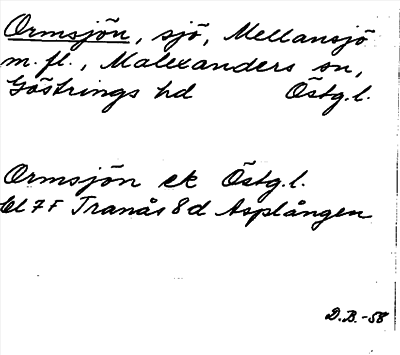 Ormsjön, sjö, Mellansjö
m.fl., Malexanders sn,
Göstrings hd Östg.l.
Ormsjön ek Östg.l.
Bl 7F Tranås 8d Asplången
D.B.-58